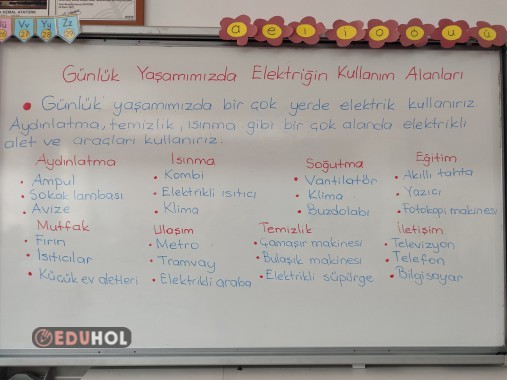 KEMAL ATATÜRK
Üü Vv Yy Zz
27 28 29
a e ı i o ö u ü
Günlük Yaşamımızda Elektriğin Kullanım Alanları
• Günlük yaşamımızda bir çok yerde elektrik kullanırız.
Aydınlatma, temizlik, ısınma gibi bir çok alanda elektrikli
alet ve araçları kullanırız.
Aydınlatma
• Ampul
• Sokak lambası
• Avize
Isınma
• Kombi
• Elektrikli ısıtıcı
• Klima
Soğutma
• Vantilatör
• Klima
• Buzdolabı
Eğitim
• Akıllı tahta
• Yazıcı
• Fotokopi makinesi
Mutfak
• Fırın
• Isıtıcılar
• Küçük ev aletleri
Ulaşım
• Metro
• Tramvay
• Elektrikli araba
Temizlik
• Çamaşır makinesi
• Bulaşık makinesi
• Elektrikli süpürge
İletişim
• Televizyon
• Telefon
• Bilgisayar
EDUHOL